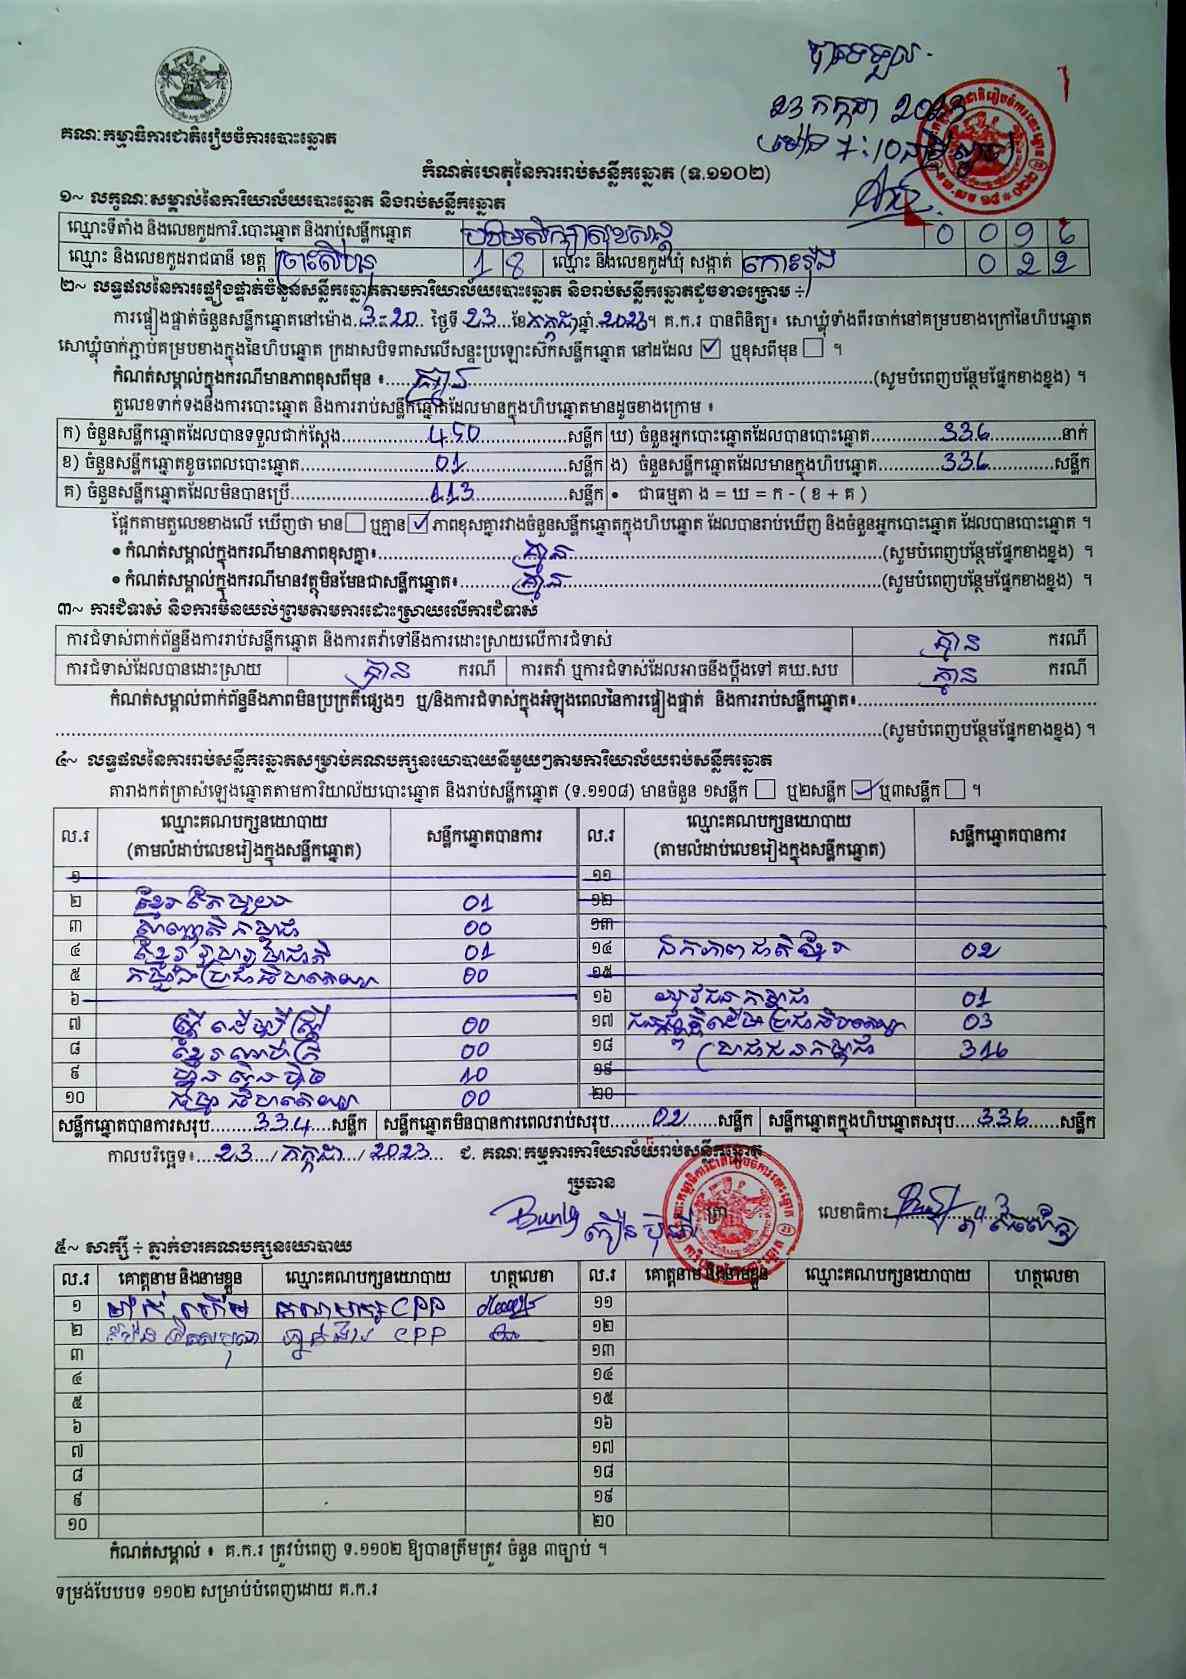 បានទទួល
23 កក្កដា 2023
ម៉ោង 7:10
គណៈកម្មាធិការជាតិរៀបចំការបោះឆ្នោត
កំណត់ហេតុនៃការរាប់សន្លឹកឆ្នោត (ទ.១១០២)
១~ លក្ខណៈសម្គាល់នៃការិយាល័យបោះឆ្នោត និងរាប់សន្លឹកឆ្នោត
ឈ្មោះទីតាំង និងលេខកូដការិ.បោះឆ្នោត និងរាប់សន្លឹកឆ្នោត
ឈ្មោះ និងលេខកូដរាជធានី ខេត្ត ព្រះសីហនុ 1 8 ឈ្មោះ និងលេខកូដឃុំ សង្កាត់ កោះរ៉ុង 0 2 2
២~ លទ្ធផលនៃការផ្ទៀងផ្ទាត់ចំនួនសន្លឹកឆ្នោតតាមការិយាល័យបោះឆ្នោត និងរាប់សន្លឹកឆ្នោតដូចខាងក្រោម ÷
ការផ្ទៀងផ្ទាត់ចំនួនសន្លឹកឆ្នោតនៅម៉ោង 3:20 ថ្ងៃទី 23 ខែ កក្កដា ឆ្នាំ 2023។ គ.ក.រ បានពិនិត្យ៖ សោឃ្លុំទាំងពីរចាក់នៅគម្របខាងក្រៅនៃហិបឆ្នោត
សោឃ្លុំចាក់ភ្ជាប់គម្របខាងក្នុងនៃហិបឆ្នោត ក្រដាសបិទពាសលើសន្ទះប្រឡោះស៊កសន្លឹកឆ្នោត នៅដដែល ☑ ឬខុសពីមុន ☐ ។
កំណត់សម្គាល់ក្នុងករណីមានភាពខុសពីមុន ៖ គ្មាន (សូមបំពេញបន្ថែមផ្នែកខាងខ្នង) ។
តួលេខទាក់ទងនឹងការបោះឆ្នោត និងការរាប់សន្លឹកឆ្នោតដែលមានក្នុងហិបឆ្នោតមានដូចខាងក្រោម ៖
ក) ចំនួនសន្លឹកឆ្នោតដែលបានទទួលជាក់ស្តែង 450 សន្លឹក ឃ) ចំនួនអ្នកបោះឆ្នោតដែលបានបោះឆ្នោត 336 នាក់
ខ) ចំនួនសន្លឹកឆ្នោតខូចពេលបោះឆ្នោត 01 សន្លឹក ង) ចំនួនសន្លឹកឆ្នោតដែលមានក្នុងហិបឆ្នោត 336 សន្លឹក
គ) ចំនួនសន្លឹកឆ្នោតដែលមិនបានប្រើ 113 សន្លឹក • ជាធម្មតា ង = ឃ = ក - ( ខ + គ )
ផ្អែកតាមតួលេខខាងលើ ឃើញថា មាន ☐ ឬគ្មាន ☑ ភាពខុសគ្នារវាងចំនួនសន្លឹកឆ្នោតក្នុងហិបឆ្នោត ដែលបានរាប់ឃើញ និងចំនួនអ្នកបោះឆ្នោត ដែលបានបោះឆ្នោត ។
• កំណត់សម្គាល់ក្នុងករណីមានភាពខុសគ្នា៖ គ្មាន (សូមបំពេញបន្ថែមផ្នែកខាងខ្នង) ។
• កំណត់សម្គាល់ក្នុងករណីមានវត្ថុមិនមែនជាសន្លឹកឆ្នោត៖ គ្មាន (សូមបំពេញបន្ថែមផ្នែកខាងខ្នង) ។
៣~ ការជំទាស់ និងការមិនយល់ព្រមតាមការដោះស្រាយលើការជំទាស់
ការជំទាស់ពាក់ព័ន្ធនឹងការរាប់សន្លឹកឆ្នោត និងការតវ៉ាទៅនឹងការដោះស្រាយលើការជំទាស់ គ្មាន ករណី
ការជំទាស់ដែលបានដោះស្រាយ គ្មាន ករណី ការតវ៉ា ឬការជំទាស់ដែលអាចនឹងប្តឹងទៅ គឃ.សប គ្មាន ករណី
កំណត់សម្គាល់ពាក់ព័ន្ធនឹងភាពមិនប្រក្រតីផ្សេងៗ ឬ/និងការជំទាស់ក្នុងអំឡុងពេលនៃការផ្ទៀងផ្ទាត់ និងការរាប់សន្លឹកឆ្នោត៖
(សូមបំពេញបន្ថែមផ្នែកខាងខ្នង) ។
៤~ លទ្ធផលនៃការរាប់សន្លឹកឆ្នោតសម្រាប់គណបក្សនយោបាយនីមួយៗតាមការិយាល័យរាប់សន្លឹកឆ្នោត
តារាងកត់ត្រាសំឡេងឆ្នោតតាមការិយាល័យបោះឆ្នោត និងរាប់សន្លឹកឆ្នោត (ទ.១១០៨) មានចំនួន ១សន្លឹក ☐ ឬ២សន្លឹក ☑ ឬ៣សន្លឹក ☐ ។
ល.រ ឈ្មោះគណបក្សនយោបាយ (តាមលំដាប់លេខរៀងក្នុងសន្លឹកឆ្នោត) សន្លឹកឆ្នោតបានការ ល.រ ឈ្មោះគណបក្សនយោបាយ (តាមលំដាប់លេខរៀងក្នុងសន្លឹកឆ្នោត) សន្លឹកឆ្នោតបានការ
១ ១១
២ ខ្មែរតែមួយ 01 ១២
៣ 00 ១៣
៤ 01 ១៤ ឯកភាពជាតិខ្មែរ 02
៥ កម្ពុជាប្រជាធិបតេយ្យ 00 ១៥
៦ ១៦ យុវជនកម្ពុជា 01
៧ ស្ត្រីដើម្បីស្ត្រី 00 ១៧ 03
៨ ខ្មែរ 00 ១៨ ប្រជាជនកម្ពុជា 316
៩ ហ៊្វុនស៊ិនប៉ិច 10 ១៩
១០ 00 ២០
សន្លឹកឆ្នោតបានការសរុប 334 សន្លឹក សន្លឹកឆ្នោតមិនបានការពេលរាប់សរុប 02 សន្លឹក សន្លឹកឆ្នោតក្នុងហិបឆ្នោតសរុប 336 សន្លឹក
កាលបរិច្ឆេទ៖ 23 / កក្កដា / 2023 ជ. គណៈកម្មការការិយាល័យរាប់សន្លឹកឆ្នោត
ប្រធាន
លេខាធិការ
៥~ សាក្សី ÷ ភ្នាក់ងារគណបក្សនយោបាយ
ល.រ គោត្តនាម និងនាមខ្លួន ឈ្មោះគណបក្សនយោបាយ ហត្ថលេខា ល.រ គោត្តនាម និងនាមខ្លួន ឈ្មោះគណបក្សនយោបាយ ហត្ថលេខា
១ គណបក្ស CPP ១១
២ ភ្នាក់ងារ CPP ១២
៣ ១៣
៤ ១៤
៥ ១៥
៦ ១៦
៧ ១៧
៨ ១៨
៩ ១៩
១០ ២០
កំណត់សម្គាល់ ៖ គ.ក.រ ត្រូវបំពេញ ទ.១១០២ ឱ្យបានត្រឹមត្រូវ ចំនួន ៣ច្បាប់ ។
ទម្រង់បែបបទ ១១០២ សម្រាប់បំពេញដោយ គ.ក.រ